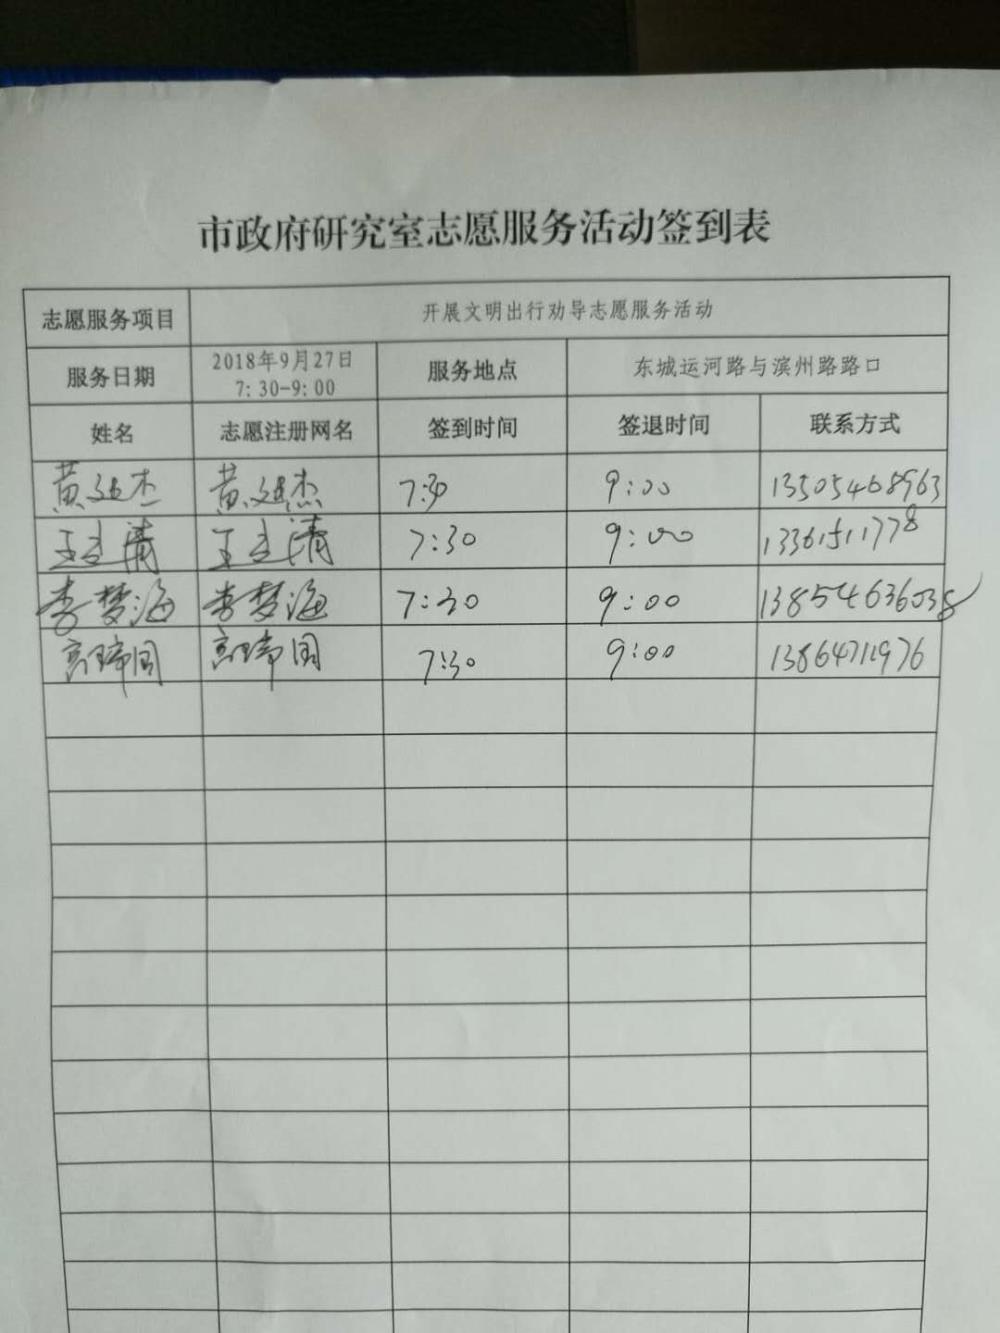 市政府研究室志愿服务活动签到表
志愿服务项目 开展文明出行劝导志愿服务活动
服务日期 2018年9月27日 7:30-9:00 服务地点 东城运河路与滨州路路口
姓名 志愿注册网名 签到时间 签退时间 联系方式
黄延杰 黄延杰 7:30 9:00 13505468963
王立清 王立清 7:30 9:00 13361511778
李梦海 李梦海 7:30 9:00 13854636038
高 国 高 国 7:30 9:00 13864711976